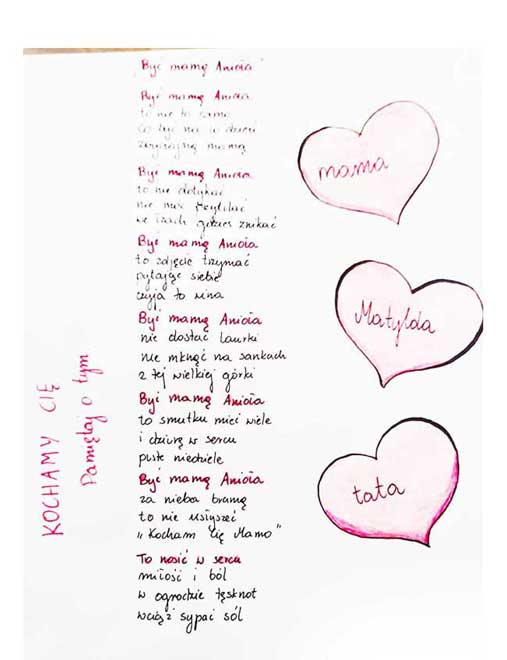 „Być mamą Anioła"
Być mamą Anioła
to nie to samo
co być na co dzień
zwyczajną mamą
Być mamą Anioła
to nie dotykać
nie móc przytulać
we łzach gdzieś znikać
Być mamą Anioła
to zdjęcie trzymać
pytając siebie
czyja to wina
Być mamą Anioła
nie dostać laurki
nie mknąć na sankach
z tej wielkiej górki
Być mamą Anioła
to smutku mieć wiele
i dziurę w sercu
puste niedziele
Być mamą Anioła
za nieba bramą
to nie usłyszeć
„Kocham Cię Mamo"
To nosić w sercu
miłość i ból
w ogrodzie tęsknot
wciąż sypać sól
KOCHAMY CIĘ
Pamiętaj o tym
mama
Matylda
tata